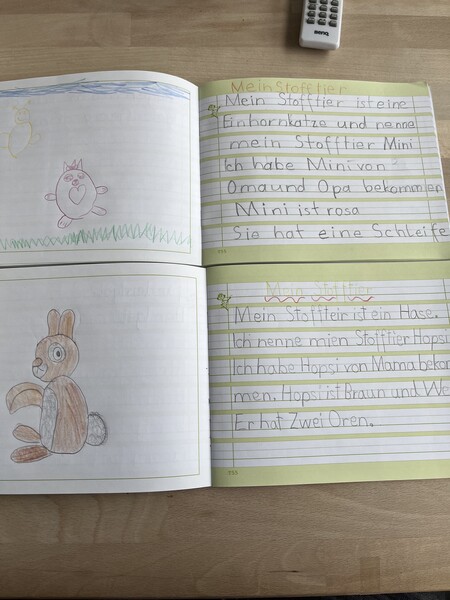 BenQ
Mein Stofftier
Mein Stofftier ist eine
Einhornkatze und nenne
mein Stofftier Mini
Ich habe Mini von
Oma und Opa bekommen
Mini ist rosa
Sie hat eine Schleife
Mein Stofftier
Mein Stoffteir ist ein Hase.
Ich nenne mien Stofftier Hopsi
Ich habe Hopsi von Mama bekom
men. Hopsi ist Braun und We
Er hat Zwei Oren.